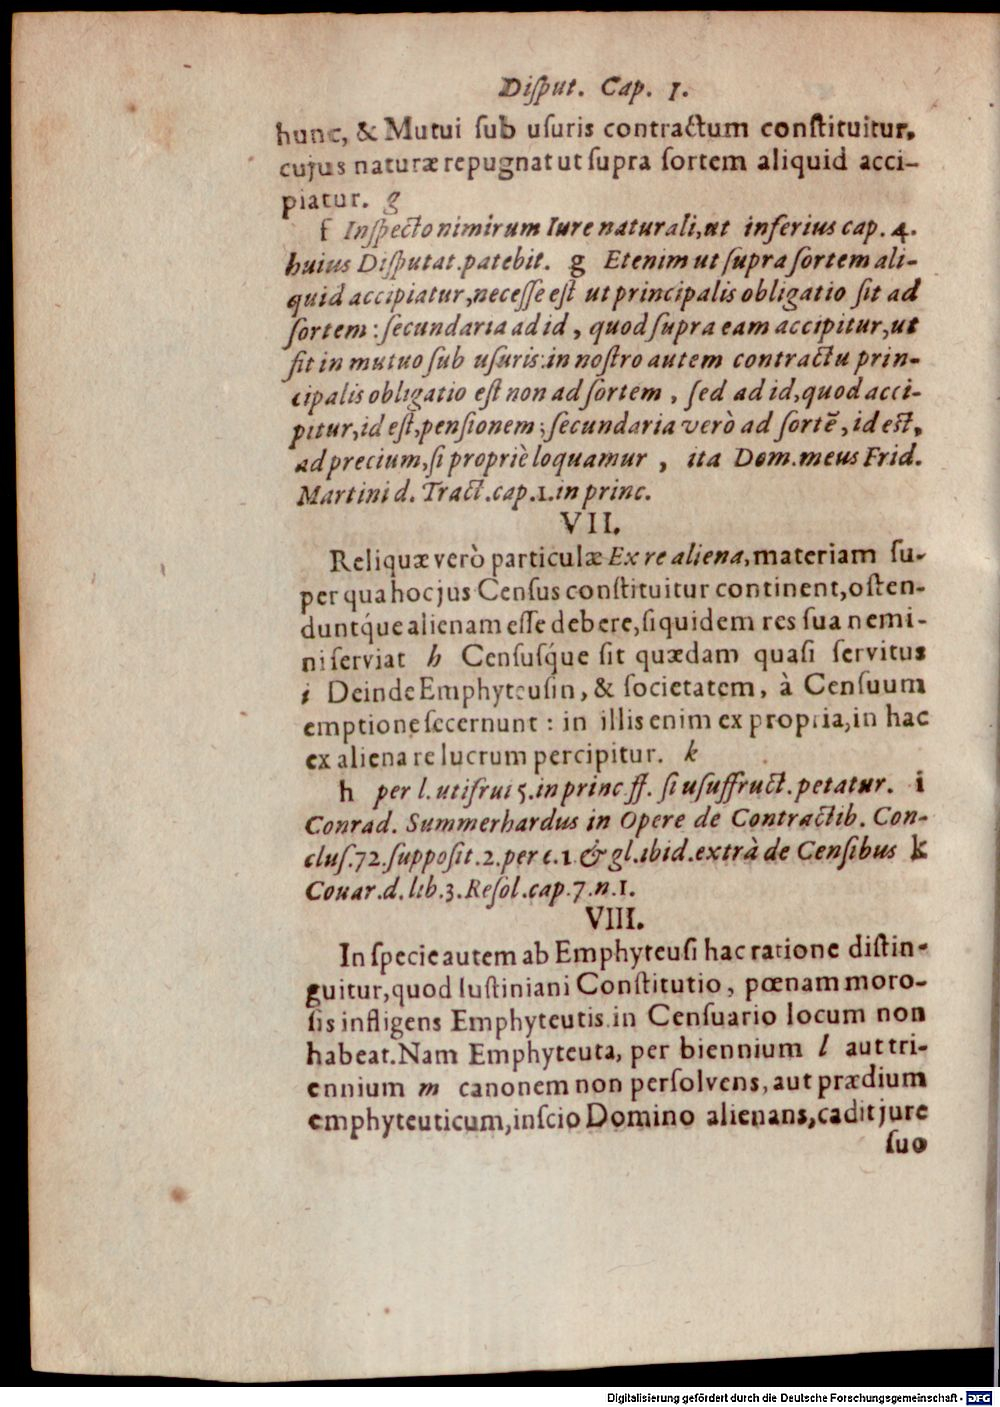 Disput. Cap. 1.
hunc, & Mutui sub usuris contractum constituitur,
cujus naturæ repugnat ut supra sortem aliquid acci-
piatur. g
f Inspecto nimirum Iure naturali, ut inferius cap. 4.
huius Disputat. patebit. g Etenim ut supra sortem ali-
quid accipiatur, necesse est ut principalis obligatio sit ad
sortem: secundaria ad id, quod supra eam accipitur, ut
fit in mutuo sub usuris: in nostro autem contractu prin-
cipalis obligatio est non ad sortem, sed ad id, quod acci-
pitur, id est, pensionem; secundaria verò ad sortē, id est,
ad precium, si propriè loquamur, ita Dom. meus Frid.
Martini d. Tract. cap. 1. in princ.
VII.
Reliquæ verò particulæ Ex re aliena, materiam su-
per qua hoc jus Census constituitur continent, osten-
duntq́ue alienam esse debere, siquidem res sua nemi-
ni serviat h Censusq́ue sit quædam quasi servitus
i Deinde Emphyteusin, & societatem, à Censuum
emptione secernunt: in illis enim ex propria, in hac
ex aliena re lucrum percipitur. k
h per l. uti frui 5. in princ. ff. si usuffruct. petatur. i
Conrad. Summerhardus in Opere de Contractib. Con-
clus. 72. supposit. 2. per c. 1 & gl. ibid. extrà de Censibus k
Couar. d. lib. 3. Resol. cap. 7. n. 1.
VIII.
In specie autem ab Emphyteusi hac ratione distin-
guitur, quod Iustiniani Constitutio, pœnam moro-
sis infligens Emphyteutis in Censuario locum non
habeat. Nam Emphyteuta, per biennium l aut tri-
ennium m canonem non persolvens, aut prædium
emphyteuticum, inscio Domino alienans, cadit jure
suo
Digitalisierung gefördert durch die Deutsche Forschungsgemeinschaft - DFG